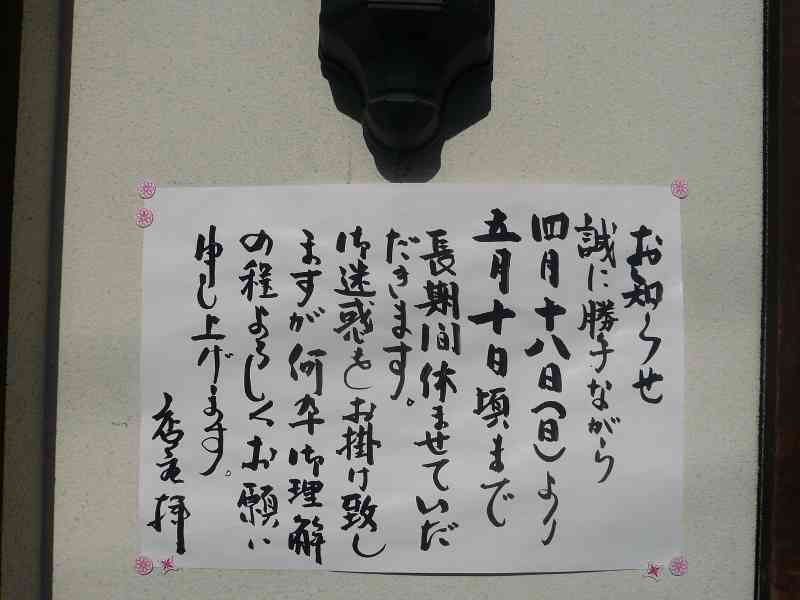 お知らせ
誠に勝手ながら
四月十八日(日)より
五月十日頃まで
長期間休ませていだ
だきます。
御迷惑をお掛け致し
ますが何卒御理解
の程よろしくお願い
申し上げます。
店主拝